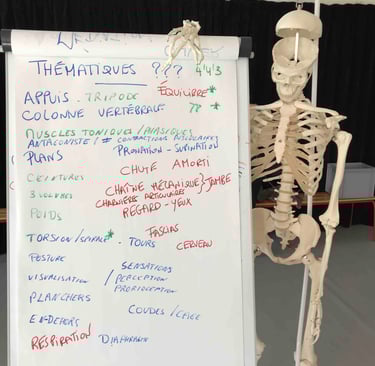 THÉMATIQUES ??? 4'4'3
ÉQUILIBRE *
APPUIS . TRIPODE
COLONNE VERTÉBRALE ?? *
MUSCLES TONIQUES / PHASIQUES
ANTAGONISTE / ≠ CONTRACTIONS MUSCULAIRES
PLANS PRONATION - SUPINATION
CHUTE AMORTI
CEINTURES
CHAÎNE MÉCANIQUE } JAMBE
3 VOLUMES CHARNIÈRE ARTICULAIRE
POIDS REGARD - YEUX
FASCIAS
TORSION / SPIRALE * . TOURS CERVEAU
POSTURE
SENSATIONS
VISUALISATION / PERCEPTION
PROPRIOCEPTION
PLANCHERS
COUDES /
EN-DEHORS
RESPIRATION DIAPHRAGME